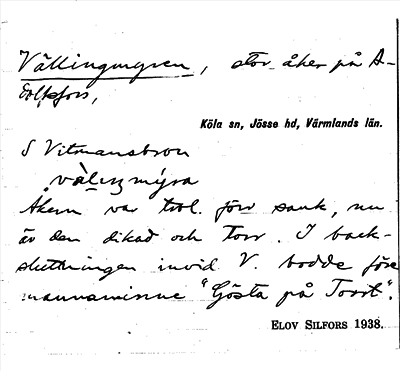 Vällingmyren, stor åker på A-
dolfsfors,
Köla sn, Jösse hd, Värmlands län.
S Vitmansbron
Åkern var trol. förr sank, nu
är den dikad och torr. I back-
sluttningen invid V. bodde före
mannaminne "Gösta på Torst".
ELOV SILFORS 1938.